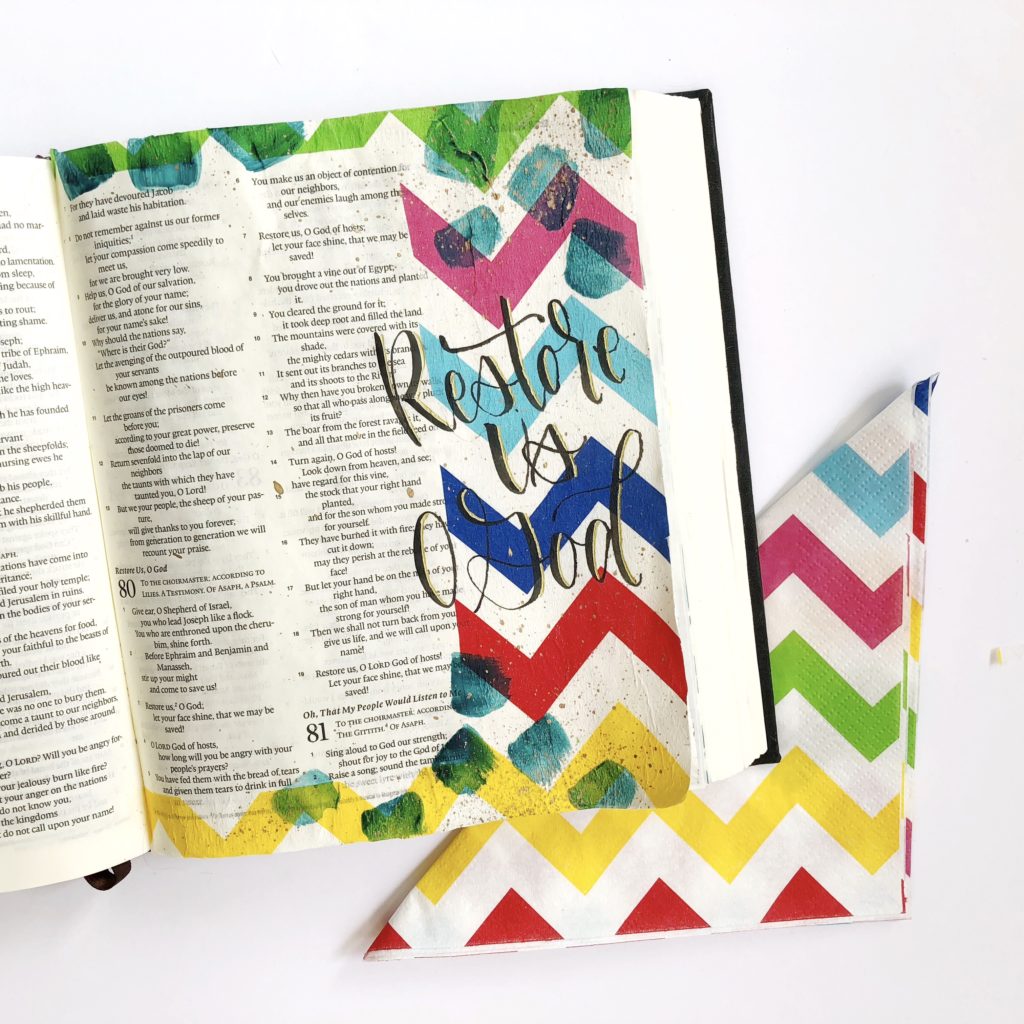 en,
ad no mar-
rd,
o lamentation.
om sleep,
ing because of
s to rout;
ting shame.
seph;
tribe of Ephraim,
Judah,
e loves.
like the high heav-
h he has founded
ervant
n the sheepfolds;
nursing ewes he
b his people,
tance.
he shepherded them
n with his skillful hand.
SAPH.
ations have come into
ritance;
filed your holy temple;
d Jerusalem in ruins.
n the bodies of your ser-
s of the heavens for food,
your faithful to the beasts of
th.
oured out their blood like
d Jerusalem,
e was no one to bury them.
come a taunt to our neighbors,
and derided by those around
O LORD? Will you be angry for-
er?
your jealousy burn like fire?
t your anger on the nations
do not know you,
the kingdoms
do not call upon your name!
7 For they have devoured Jacob
and laid waste his habitation.
8 Do not remember against us our former
iniquities;
let your compassion come speedily to
meet us,
for we are brought very low.
9 Help us, O God of our salvation,
for the glory of your name;
deliver us, and atone for our sins,
for your name's sake!
10 Why should the nations say,
"Where is their God?"
Let the avenging of the outpoured blood of
your servants
be known among the nations before
our eyes!
11 Let the groans of the prisoners come
before you;
according to your great power, preserve
those doomed to die!
12 Return sevenfold into the lap of our
neighbors
the taunts with which they have
taunted you, O Lord!
13 But we your people, the sheep of your pas-
ture,
will give thanks to you forever;
from generation to generation we will
recount your praise.
Restore Us, O God
80 TO THE CHOIRMASTER: ACCORDING TO
LILIES. A TESTIMONY. OF ASAPH, A PSALM.
1 Give ear, O Shepherd of Israel,
you who lead Joseph like a flock.
You who are enthroned upon the cheru-
bim, shine forth.
2 Before Ephraim and Benjamin and
Manasseh,
stir up your might
and come to save us!
3 Restore us,² O God;
let your face shine, that we may be
saved!
4 O LORD God of hosts,
how long will you be angry with your
people's prayers?
5 You have fed them with the bread of tears
and given them tears to drink in full
6 You make us an object of contention for
our neighbors,
and our enemies laugh among the
selves.
7 Restore us, O God of hosts;
let your face shine, that we may be
saved!
8 You brought a vine out of Egypt;
you drove out the nations and planted
it.
9 You cleared the ground for it;
it took deep root and filled the land.
10 The mountains were covered with its
shade,
the mighty cedars with its bran
11 It sent out its branches to the sea
and its shoots to the Ri
12 Why then have you broken down its walls
so that all who pass along pluck
its fruit?
13 The boar from the forest ravages it,
and all that move in the field feed o
14 Turn again, O God of hosts!
Look down from heaven, and see;
have regard for this vine,
15 the stock that your right hand
planted,
and for the son whom you made stro
for yourself.
16 They have burned it with fire; they hav
cut it down;
may they perish at the rebuke of you
face!
17 But let your hand be on the man of you
right hand,
the son of man whom you have ma
strong for yourself!
18 Then we shall not turn back from you
give us life, and we will call upon you
name!
19 Restore us, O LORD God of hosts!
Let your face shine, that we may
saved!
Oh, That My People Would Listen to Me
81 TO THE CHOIRMASTER: ACCORDING
THE GITTITH.⁴ OF ASAPH.
1 Sing aloud to God our strength;
shout for joy to the God of
2 Raise a song; sound the tam
Restore
us
O God